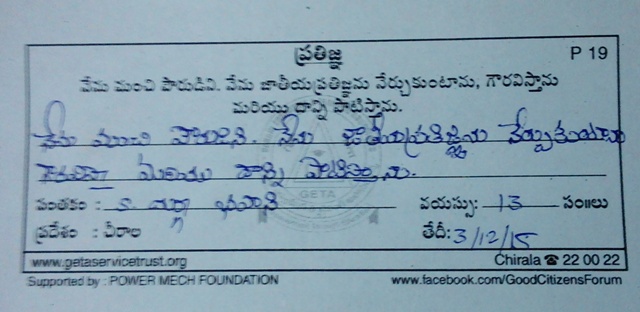 ప్రతిజ్ఞ
P 19
నేను మంచి పౌరుడిని. నేను జాతీయప్రతిజ్ఞను నేర్చుకుంటాను, గౌరవిస్తాను
మరియు దాన్ని పాటిస్తాను.
నేను మంచి పౌరుడిని నేను జాతీయప్రతిజ్ఞను
మరియు దాన్ని పాటిస్తాను.
GETA
సంతకం : భవాని వయస్సు: 13 సం॥లు
ప్రదేశం : చీరాల తేదీ: 3/12/15
www.getaservicetrust.org Chirala ☎ 22 00 22
Supported by : POWER MECH FOUNDATION www.facebook.com/GoodCitizensForum